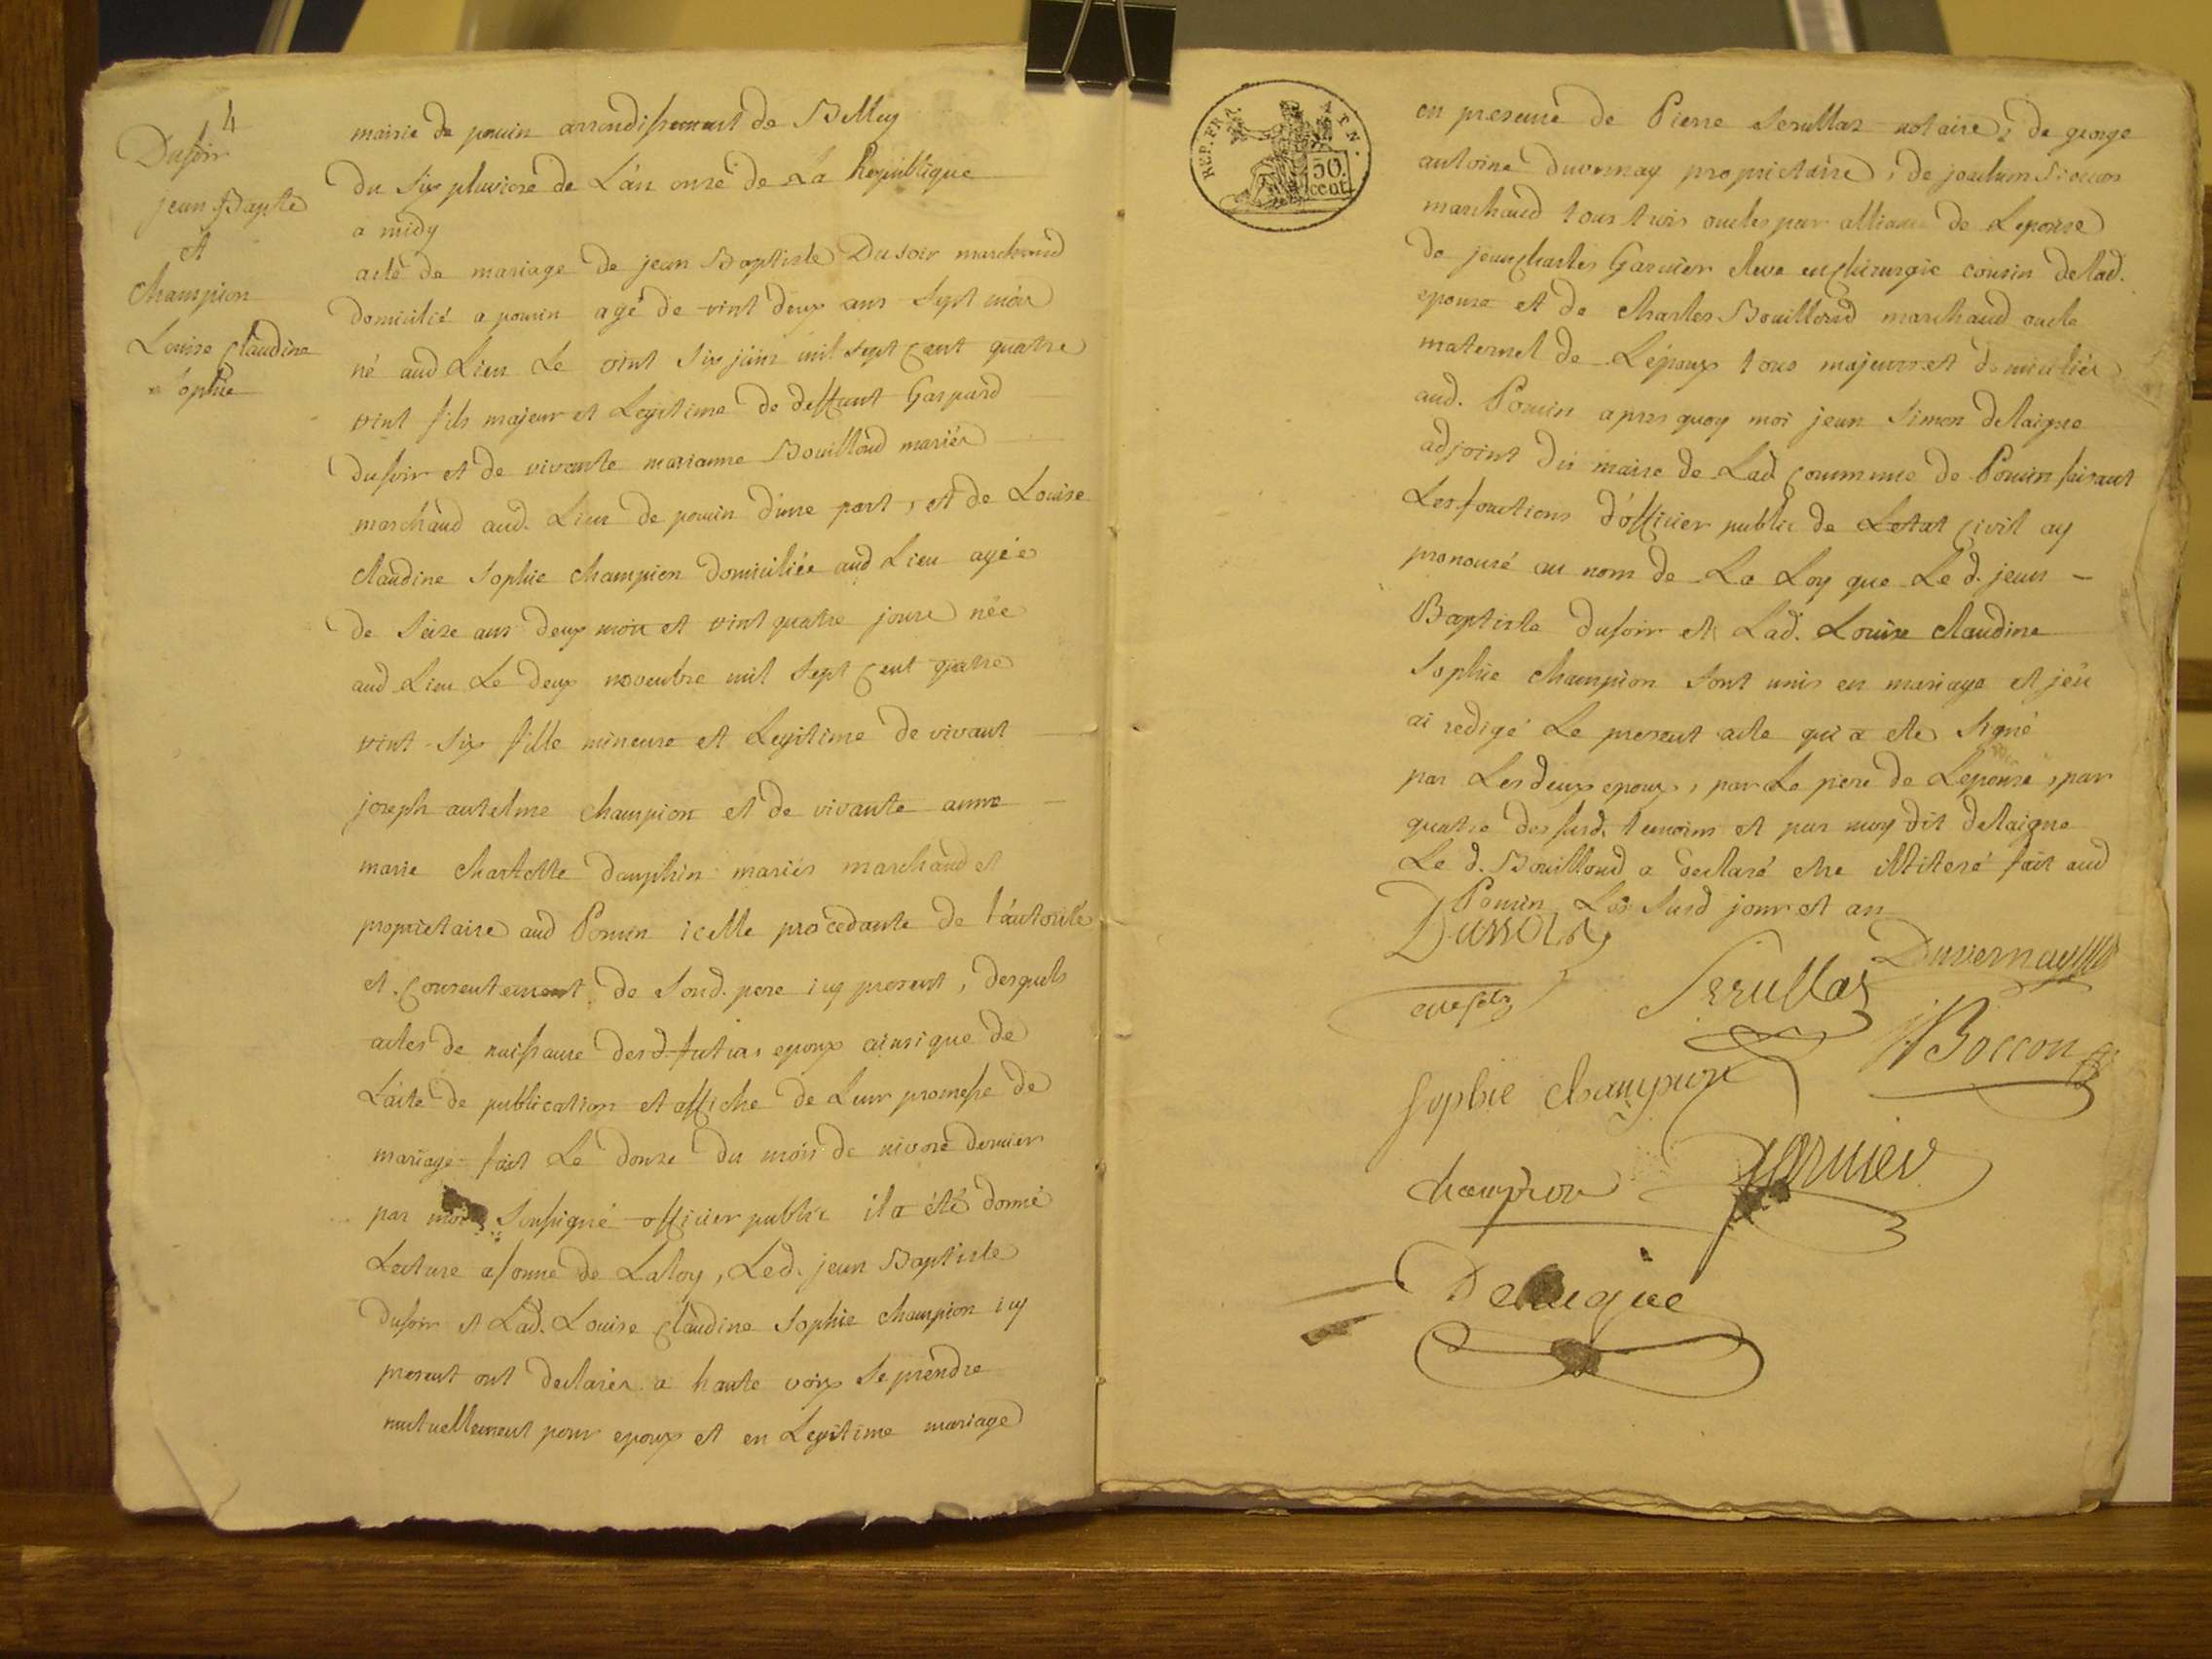 4
Dusoir
jean Bapte
et
champion
Louise Claudine
sophie
mairie de poncin arrondissement de Belley
du six pluviose de L'an onze de La Republique
a midy
acte de mariage de jean Baptiste Dusoir marchand
domicilié a poncin agé de vint deux ans sept mois
né aud Lieu Le vint six juin mil sept cent quatre
vint fils majeur et Legitime de deffunt Gaspard
dusoir et de vivante marianne Bouilloud mariés
marchand aud. Lieu de poncin d'une part, et de Louise
claudine sophie champion domiciliée aud Lieu agée
de seize ans deux mois et vint quatre jours née
aud Lieu Le deux novembre mil sept cent quatre
vint six fille mineure et Legitime de vivant
joseph antelme champion et de vivante anne
marie charlotte dauphin mariés marchand et
propriétaire aud Poncin icelle procedante de l'autorité
et consentement de sond. pere icy present, desquels
actes de naissance desd. futurs epoux ainsi que de
L'acte de publication et affiche de Leur promesse de
mariage fait Le douze du mois de nivose dernier
par moi soussigné officier public il a été donné
Lecture a forme de La loy, Led. jean Baptiste
dusoir et Lad. Louise Claudine Sophie champion icy
present ont declarés a haute voix se prendre
mutuellement pour epoux et en Legitime mariage
REP. FRA. NAT.
50 cent
en presence de Pierre Serullas notaire, de george
antoine duvernay proprietaire, de joachim Boccon
marchand tous trois oncles par alliance de Lepouse
de jean charles Garnier eleve en chirurgie cousin de lad.
epouse et de charles Bouilloud marchand oncle
maternel de Lépoux tous majeurs et domiciliés
aud. Poncin apres quoy moi jean simon delaigue
adjoint du maire de Lad Commune de Poncin faisant
Les fonctions d'officier public de Letat Civil ay
prononcé au nom de La Loy que Le d. jean -
Baptiste dusoir et Lad. Louise claudine
sophie champion sont unis en mariage et j'en
ai redigé Le present acte qui a ete signé
par Les deux epoux, par Le pere de Lepouse, par
quatre des susd. temoins et par moy dit delaigue
Le d. Bouilloud a declaré etre illiteré fait aud
Poncin Les susd jour et an
Dussoir
Duvernay
Serullas
Boccon
Sophie Champion
champion
Garnier
Delaigue